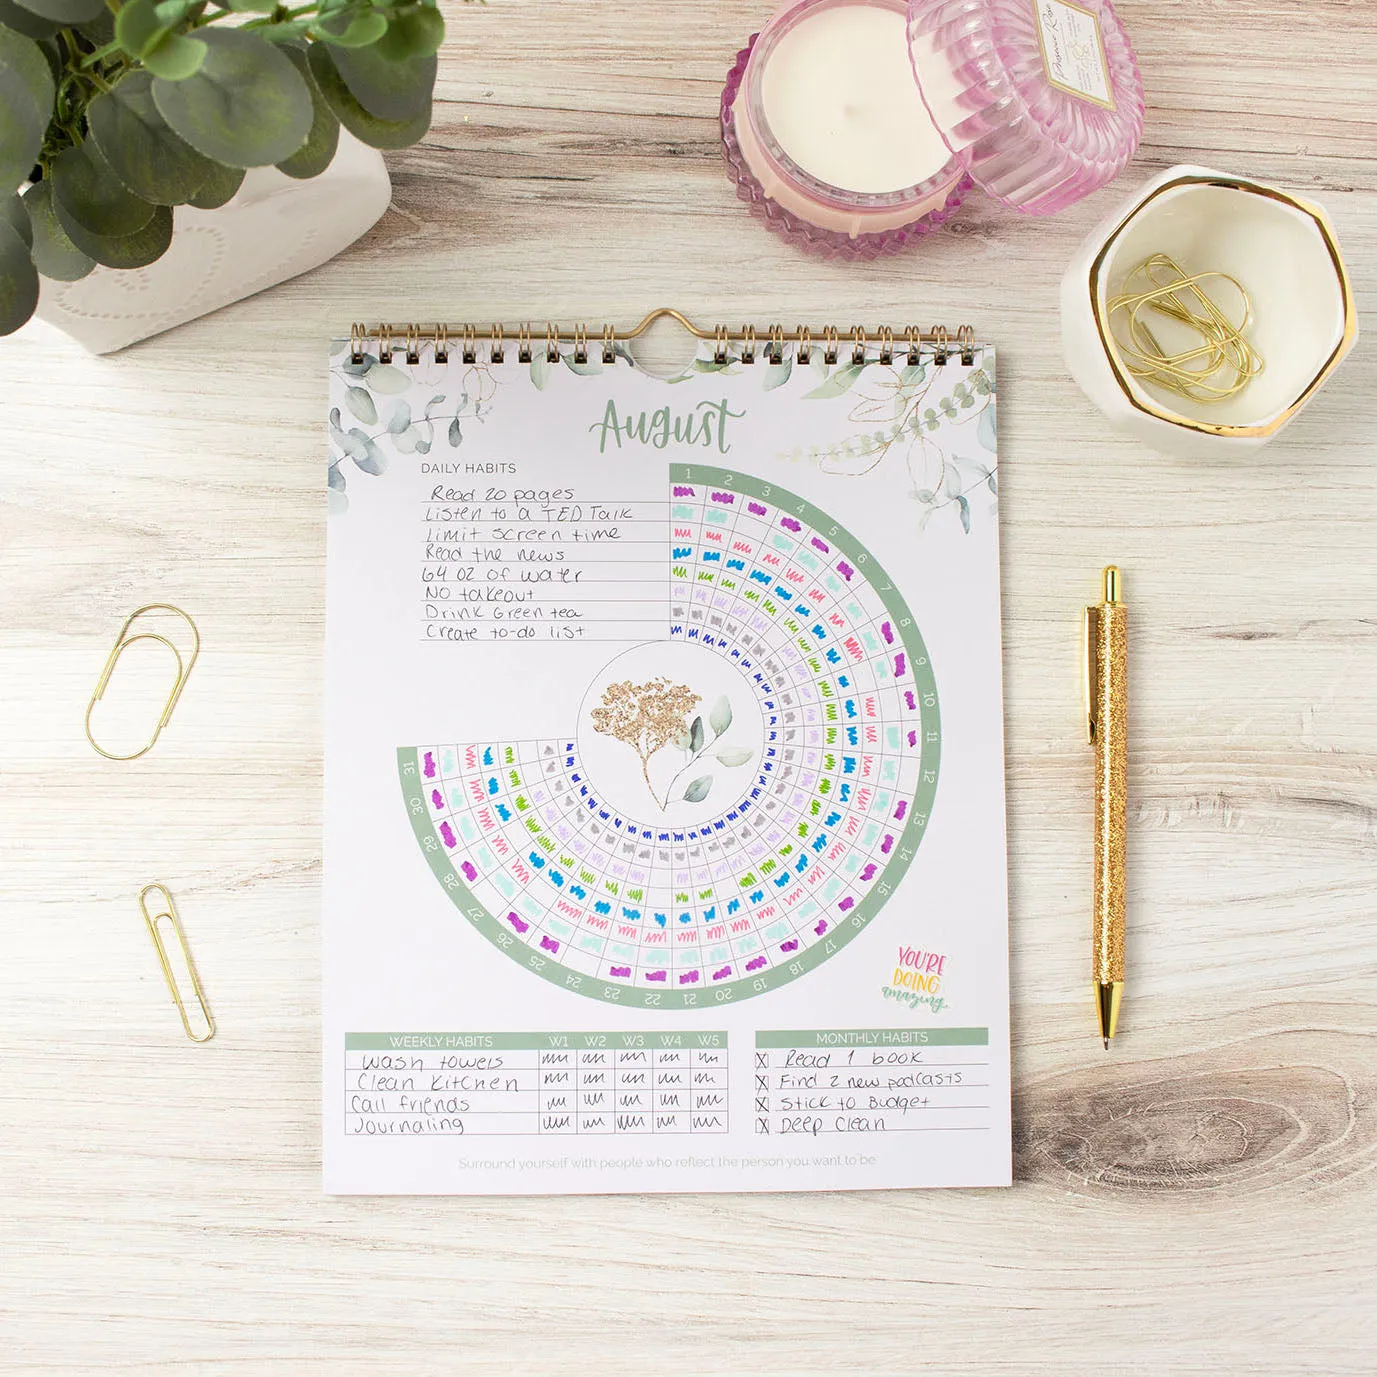 Provence Rose
August
DAILY HABITS
Read 20 pages
Listen to a TED Talk
Limit screen time
Read the news
64 oz of water
No takeout
Drink Green tea
Create to-do list
1 2 3 4 5 6 7 8 9 10 11 12 13 14 15 16 17 18 19 20 21 22 23 24 25 26 27 28 29 30 31
YOU'RE
DOING
amazing.
WEEKLY HABITS W1 W2 W3 W4 W5
Wash towels
Clean Kitchen
Call friends
Journaling
MONTHLY HABITS
X Read 1 book
X Find 2 new podcasts
X Stick to Budget
X Deep Clean
Surround yourself with people who reflect the person you want to be